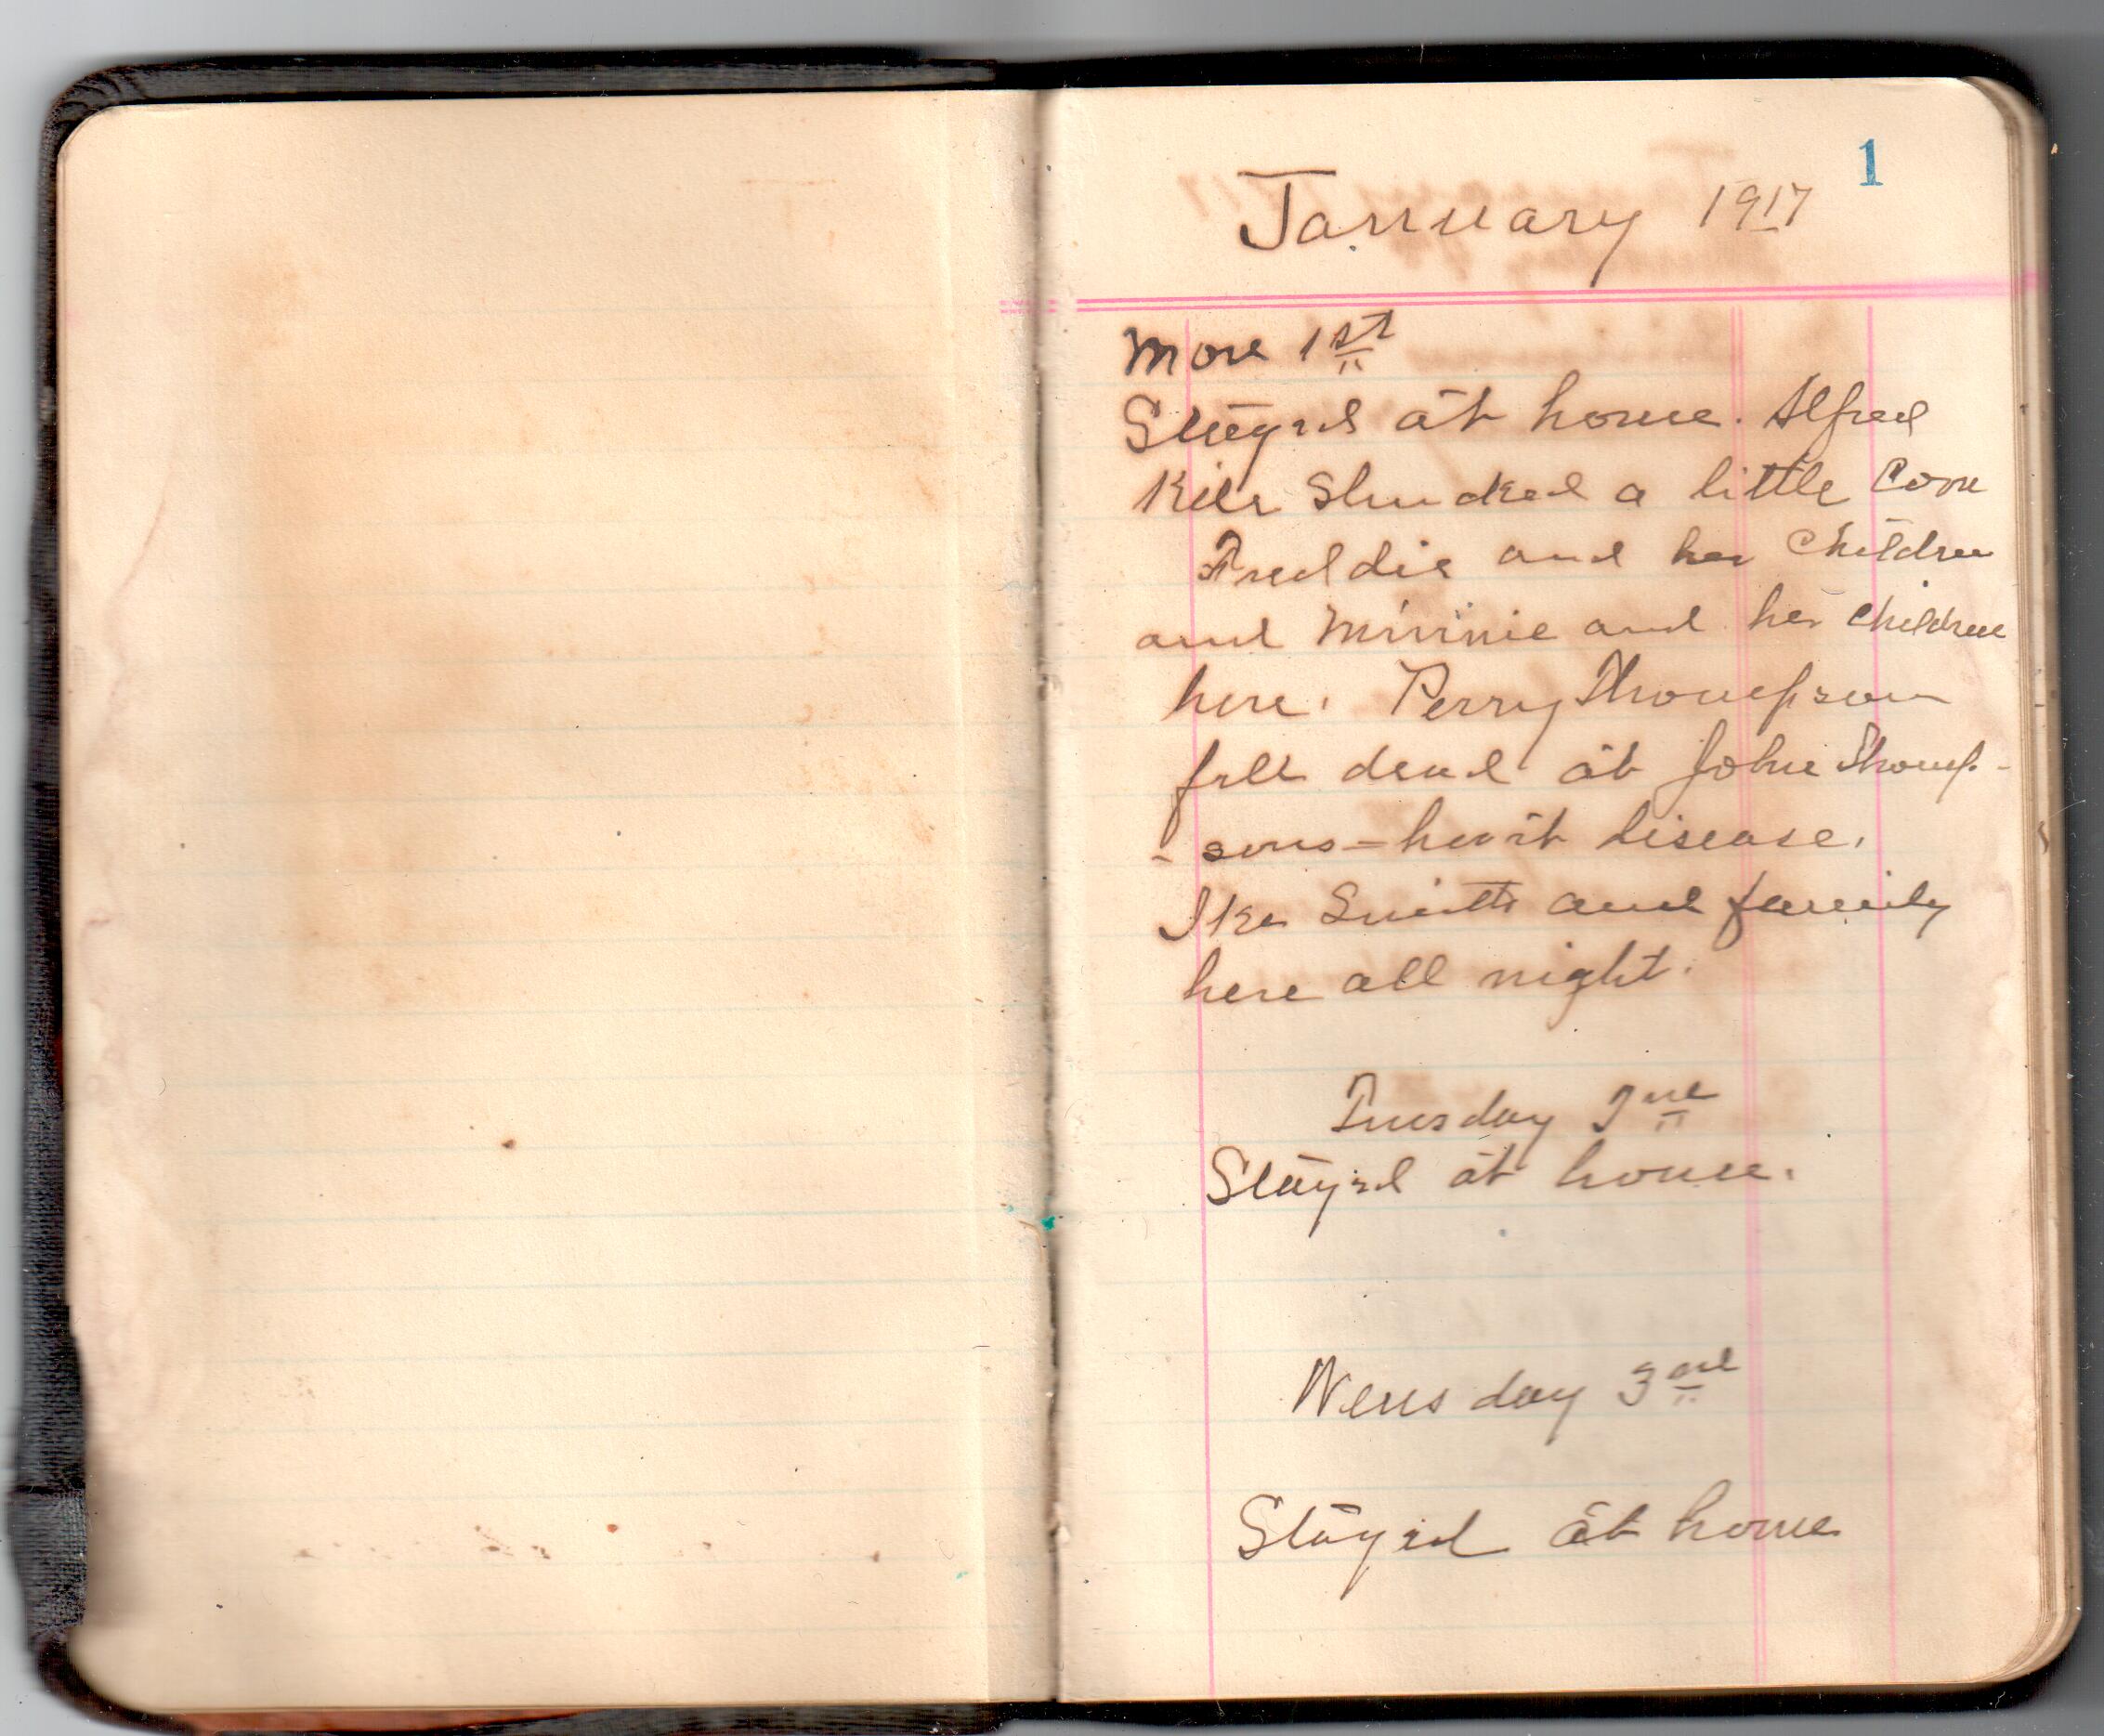 1
January 1917
Mon 1st
Stayed at home. Alfred
Kile Shucked a little Corn
Freddie and her Children
and Minnie and her children
here. Perry Thompson
fell dead at John Thomp-
- sons = heart disease.
Ike Smith and family
here all night.
Tuesday 2nd
Stayed at home.
Wensday 3rd
Stayed at home